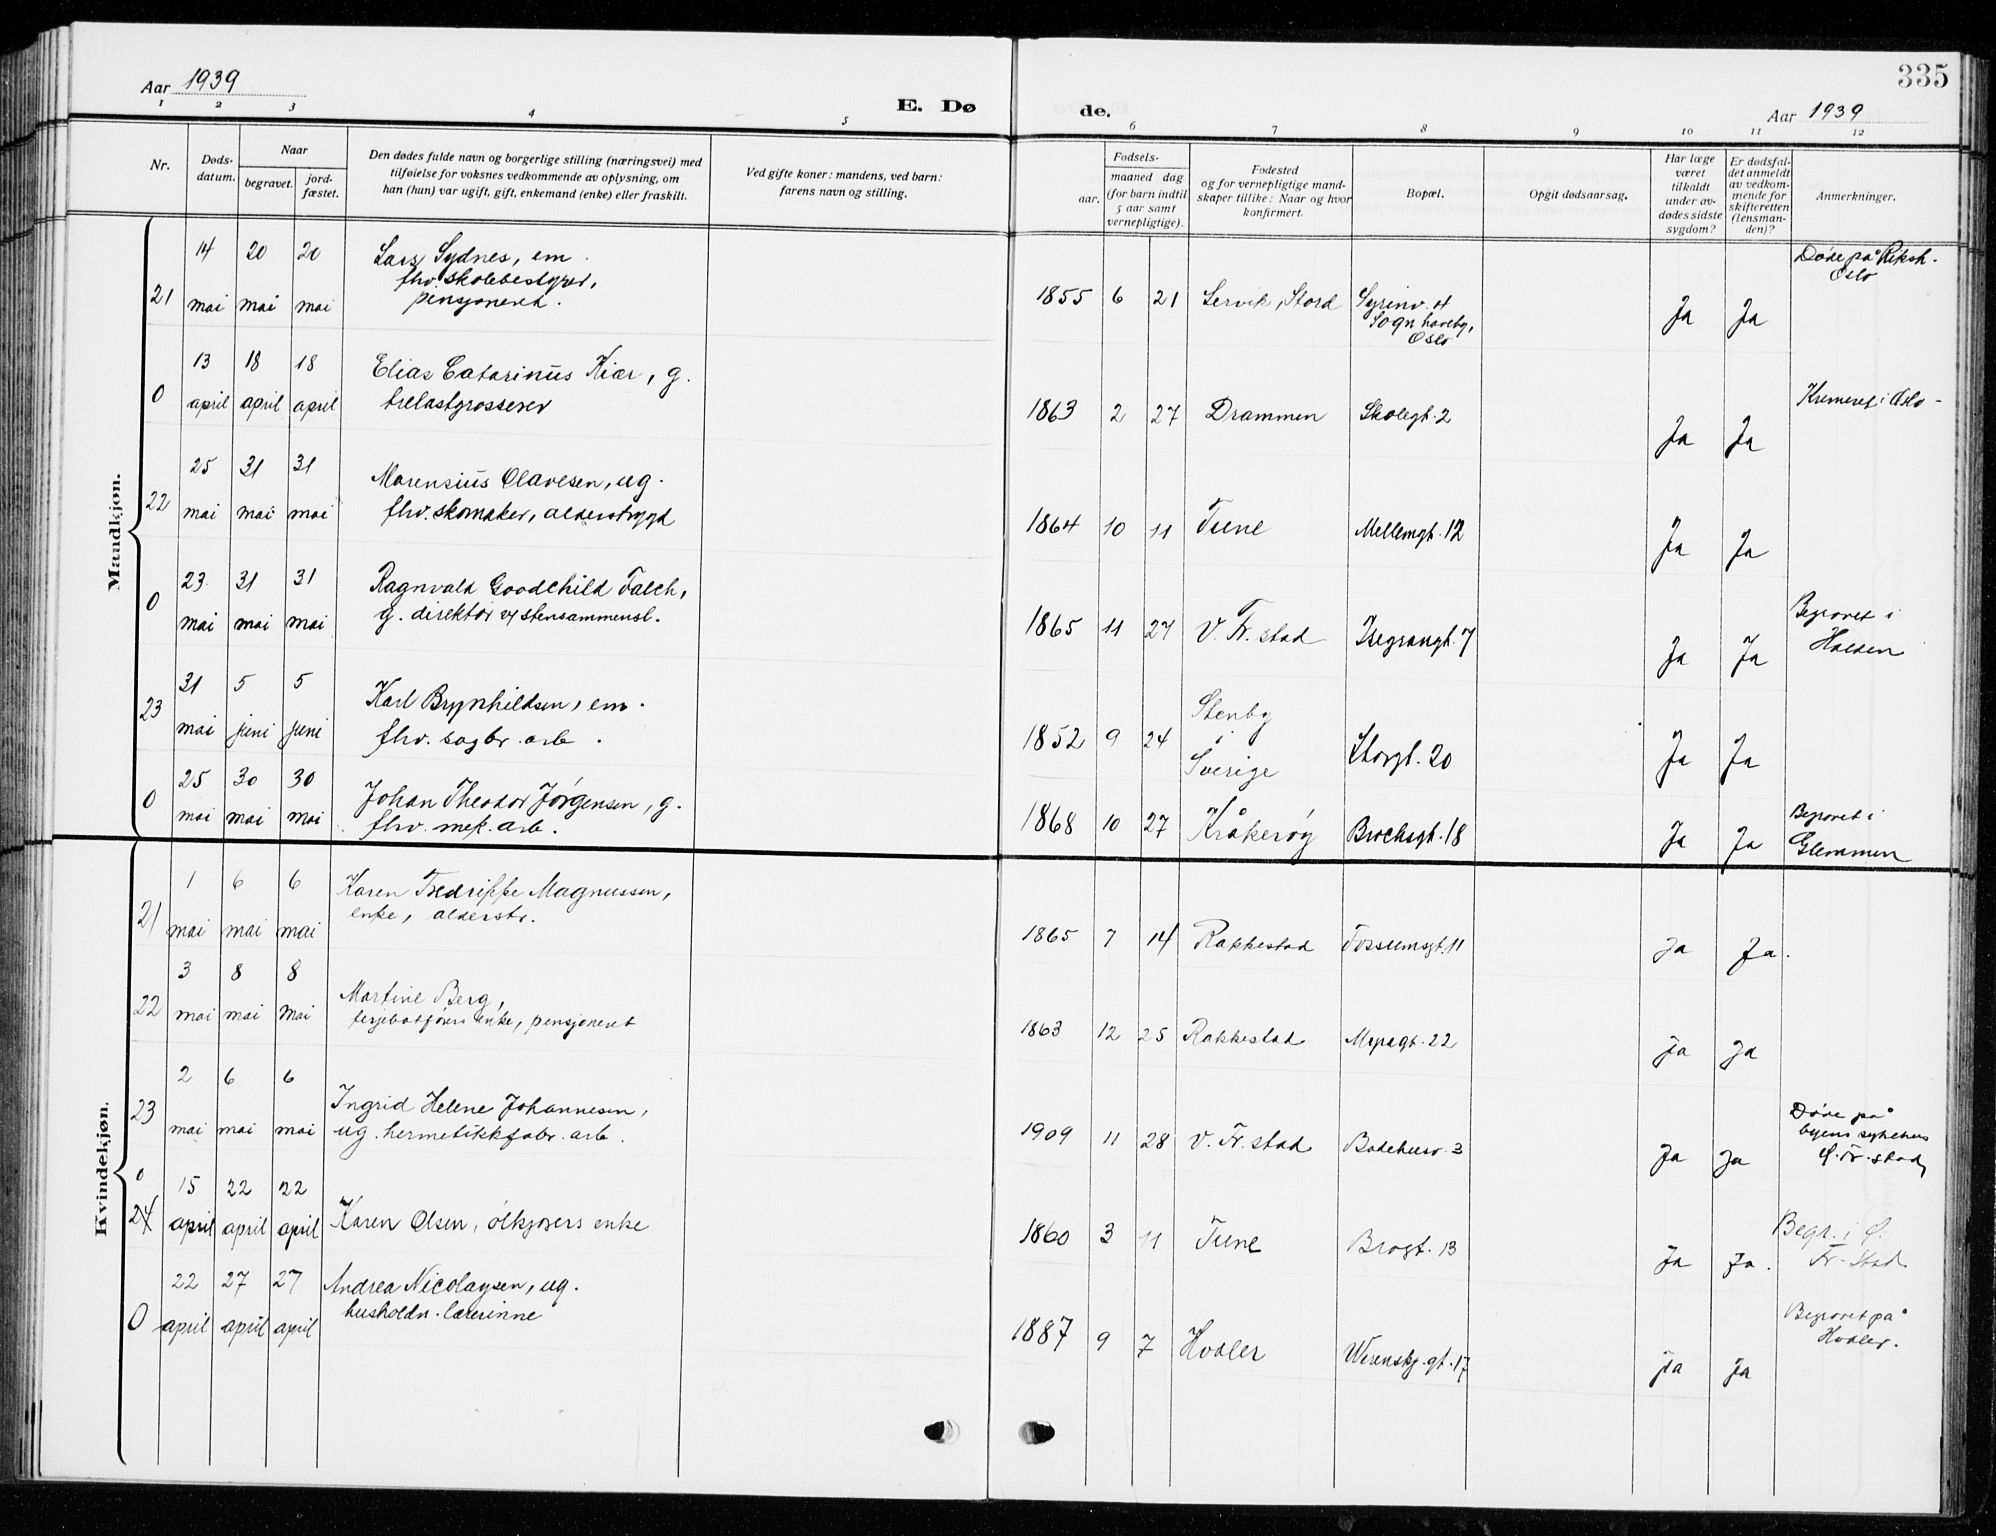 335
Aar 1939
E. Dø
de.
Aar 1939
1 2 3 4 5 6 7 8 9 10 11 12
Nr.
Døds-
datum.
Naar
begravet.
jord-
fæstet.
Den dødes fulde navn og borgerlige stilling (næringsvei) med
tilføielse for voksnes vedkommende av oplysning, om
han (hun) var ugift, gift, enkemand (enke) eller fraskilt.
Ved gifte koner: mandens, ved barn:
farens navn og stilling.
Fødsels-
aar.
maaned dag
(for barn indtil
5 aar samt
vernepligtige).
Fødested
og for vernepligtige mand-
skaper tillike: Naar og hvor
konfirmert.
Bopæl.
Opgit dødsaarsag.
Har læge
været
tilkaldt
under av-
dødes sidste
sygdom?
Er dødsfal-
det anmeldt
av vedkom-
mende for
skifteretten
(lensman-
den)?
Anmerkninger.
Mandkjøn.
21
14 20 20
mai mai mai
Lars Sydnes, em.
fhv. skolebestyrer,
pensjoneret.
1855 6 21 Lervik, Stord
Syrinv. 4
Sogn haveby,
Oslo
Ja Ja
Døde på Riksh.
Oslo
0
13 18 18
april april april
Elias Catarinus Kiær, g.
trelastgrosserer
1863 2 27 Drammen Skolegt. 2
Ja Ja
Kremeret i Oslo -
22
25 31 31
mai mai mai
Marensius Olavesen, ug.
fhv. skomaker, alderstrygd
1864 10 11 Tune Mellemgt. 12
Ja Ja
0
23 31 31
mai mai mai
Ragnvald Goodchild Falch,
g. direktør v/ stensammensl.
1865 11 27 V. Fr. stad Isegrangt. 7
Ja Ja
Begravet i
Halden
23
31 5 5
mai juni juni
Karl Brynhildsen, em.
fhv. sagbr. arb.
1852 9 24
Stenby
i
Sverige
Storgt. 20
Ja Ja
0
25 30 30
mai mai mai
Johan Theodor Jørgensen, g.
fhv. mek. arb.
1868 10 27 Kråkerøy Brochsgt. 18
Ja Ja
Begravet i
Glemmen
Kvindekjøn.
21
1 6 6
mai mai mai
Karen Fredrikke Magnussen,
enke, alderstr.
1865 7 14 Rakkestad Fossumsgt. 11
Ja Ja.
22
3 8 8
mai mai mai
Martine Berg,
ferjebåtførers enke, pensjoneret
1863 12 25 Rakkestad Myragt. 22
Ja Ja
23
2 6 6
mai mai mai
Ingrid Helene Johannesen,
ug. hermetikkfabr. arb.
1909 11 28 V. Fr. stad Badehusv. 3
Ja Ja
Døde på
byens sykehus
Ø. Fr. stad
0
24
15 22 22
april april april
Karen Olsen, ølkjørers enke
1860 3 11 Tune Brogt. 13
Ja Ja.
Begr. i Ø.
Fr. Stad
0
22 27 27
april april april
Andrea Nicolaysen, ug.
husholdn. lærerinne
1887 9 7 Hvaler Werenskj. gt. 17
Ja Ja
Begravet på
Hvaler.